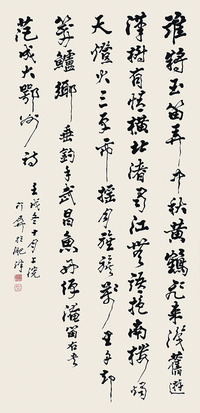 誰將玉笛弄中秋黃鶴飛來識舊遊
漢樹有情橫北渚蜀江無語抱南樓燭
天燈火三更市搖月旌旗萬里舟却
笑鱸鄉垂釣手武昌魚好便淹留右
范成大鄂州詩
壬戌冬十月上浣